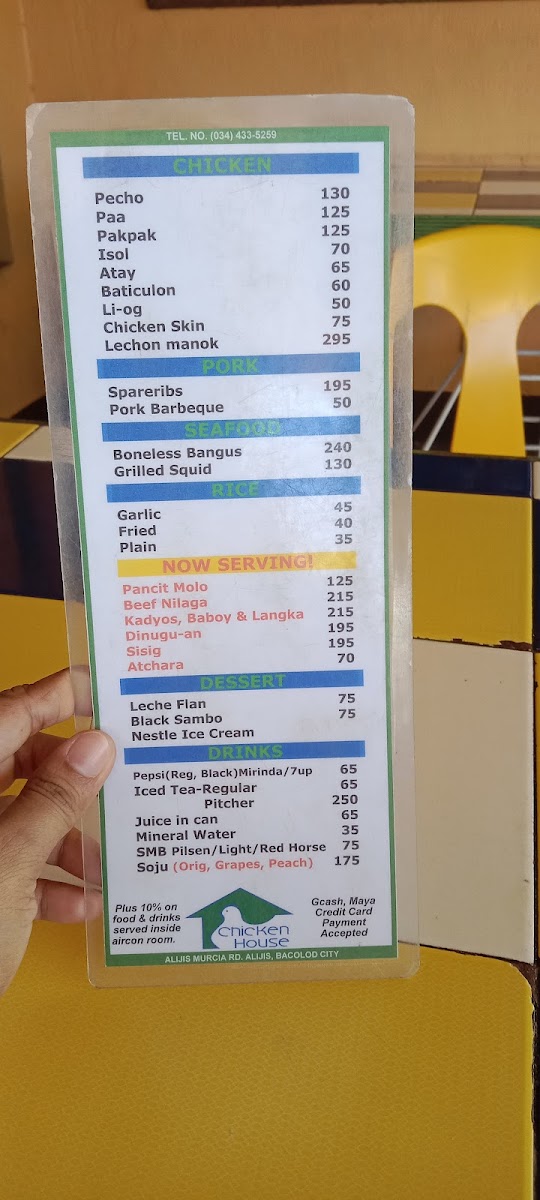 TEL. NO. (034) 433-5259
CHICKEN
Pecho 130
Paa 125
Pakpak 125
Isol 70
Atay 65
Baticulon 60
Li-og 50
Chicken Skin 75
Lechon manok 295
PORK
Spareribs 195
Pork Barbeque 50
SEAFOOD
Boneless Bangus 240
Grilled Squid 130
RICE
Garlic 45
Fried 40
Plain 35
NOW SERVING!
Pancit Molo 125
Beef Nilaga 215
Kadyos, Baboy & Langka 215
Dinugu-an 195
Sisig 195
Atchara 70
DESSERT
Leche Flan 75
Black Sambo 75
Nestle Ice Cream
DRINKS
Pepsi(Reg, Black)Mirinda/7up 65
Iced Tea-Regular 65
Pitcher 250
Juice in can 65
Mineral Water 35
SMB Pilsen/Light/Red Horse 75
Soju (Orig, Grapes, Peach) 175
Plus 10% on
food & drinks
served inside
aircon room.
Chicken
House
Gcash, Maya
Credit Card
Payment
Accepted
ALIJIS MURCIA RD. ALIJIS, BACOLOD CITY